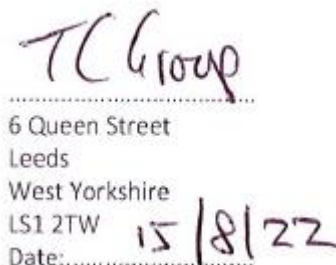 TC Group
6 Queen Street
Leeds
West Yorkshire
LS1 2TW
Date: 15/8/22